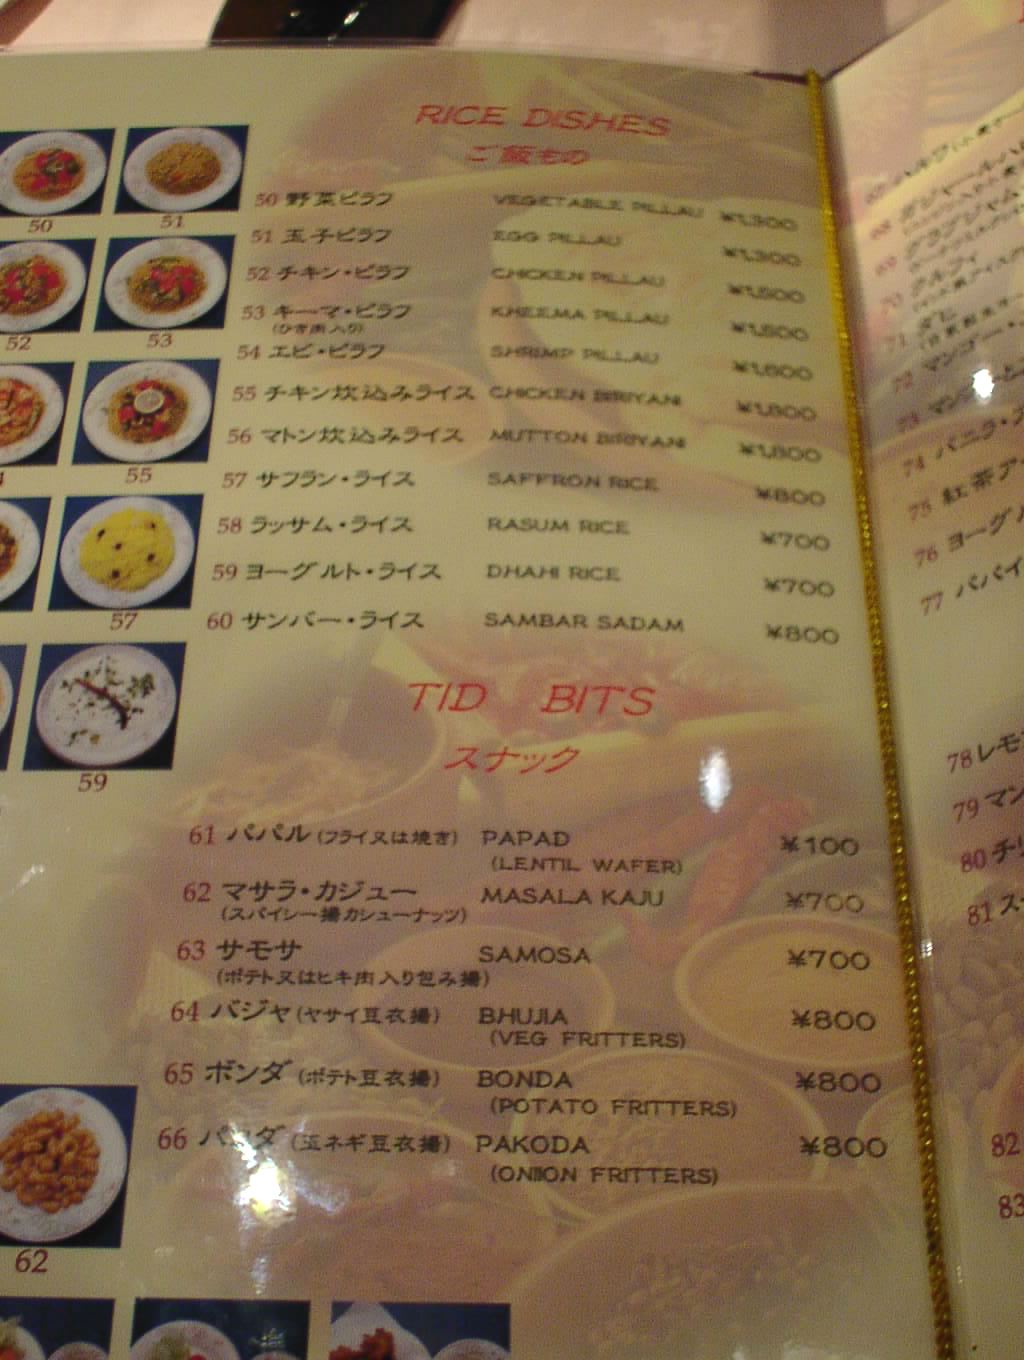 RICE DISHES
ご飯もの
50 野菜ピラフ VEGETABLE PILLAU ¥1,300
51 玉子ピラフ EGG PILLAU ¥1,300
52 チキン・ピラフ CHICKEN PILLAU ¥1,500
53 キーマ・ピラフ KHEEMA PILLAU ¥1,500
(ひき肉入り)
54 エビ・ピラフ SHRIMP PILLAU ¥1,600
55 チキン炊込みライス CHICKEN BIRIYANI ¥1,800
56 マトン炊込みライス MUTTON BIRIYANI ¥1,800
57 サフラン・ライス SAFFRON RICE ¥800
58 ラッサム・ライス RASUM RICE ¥700
59 ヨーグルト・ライス DHAHI RICE ¥700
60 サンバー・ライス SAMBAR SADAM ¥800
TID BITS
スナック
61 パパル (フライ又は焼き) PAPAD ¥100
(LENTIL WAFER)
62 マサラ・カジュー MASALA KAJU ¥700
(スパイシー揚カシューナッツ)
63 サモサ SAMOSA ¥700
(ポテト又はヒキ肉入り包み揚)
64 バジャ (ヤサイ豆衣揚) BHUJIA ¥800
(VEG FRITTERS)
65 ボンダ (ポテト豆衣揚) BONDA ¥800
(POTATO FRITTERS)
66 (玉ネギ豆衣揚) PAKODA ¥800
(ONION FRITTERS)
50
51
52
53
55
57
59
62
70
71
72
73
74 バニラ・
75 紅茶ア
76 ヨーグル
77 パパイ
78 レモ
79 マン
80 チリ
81 スー
82
83